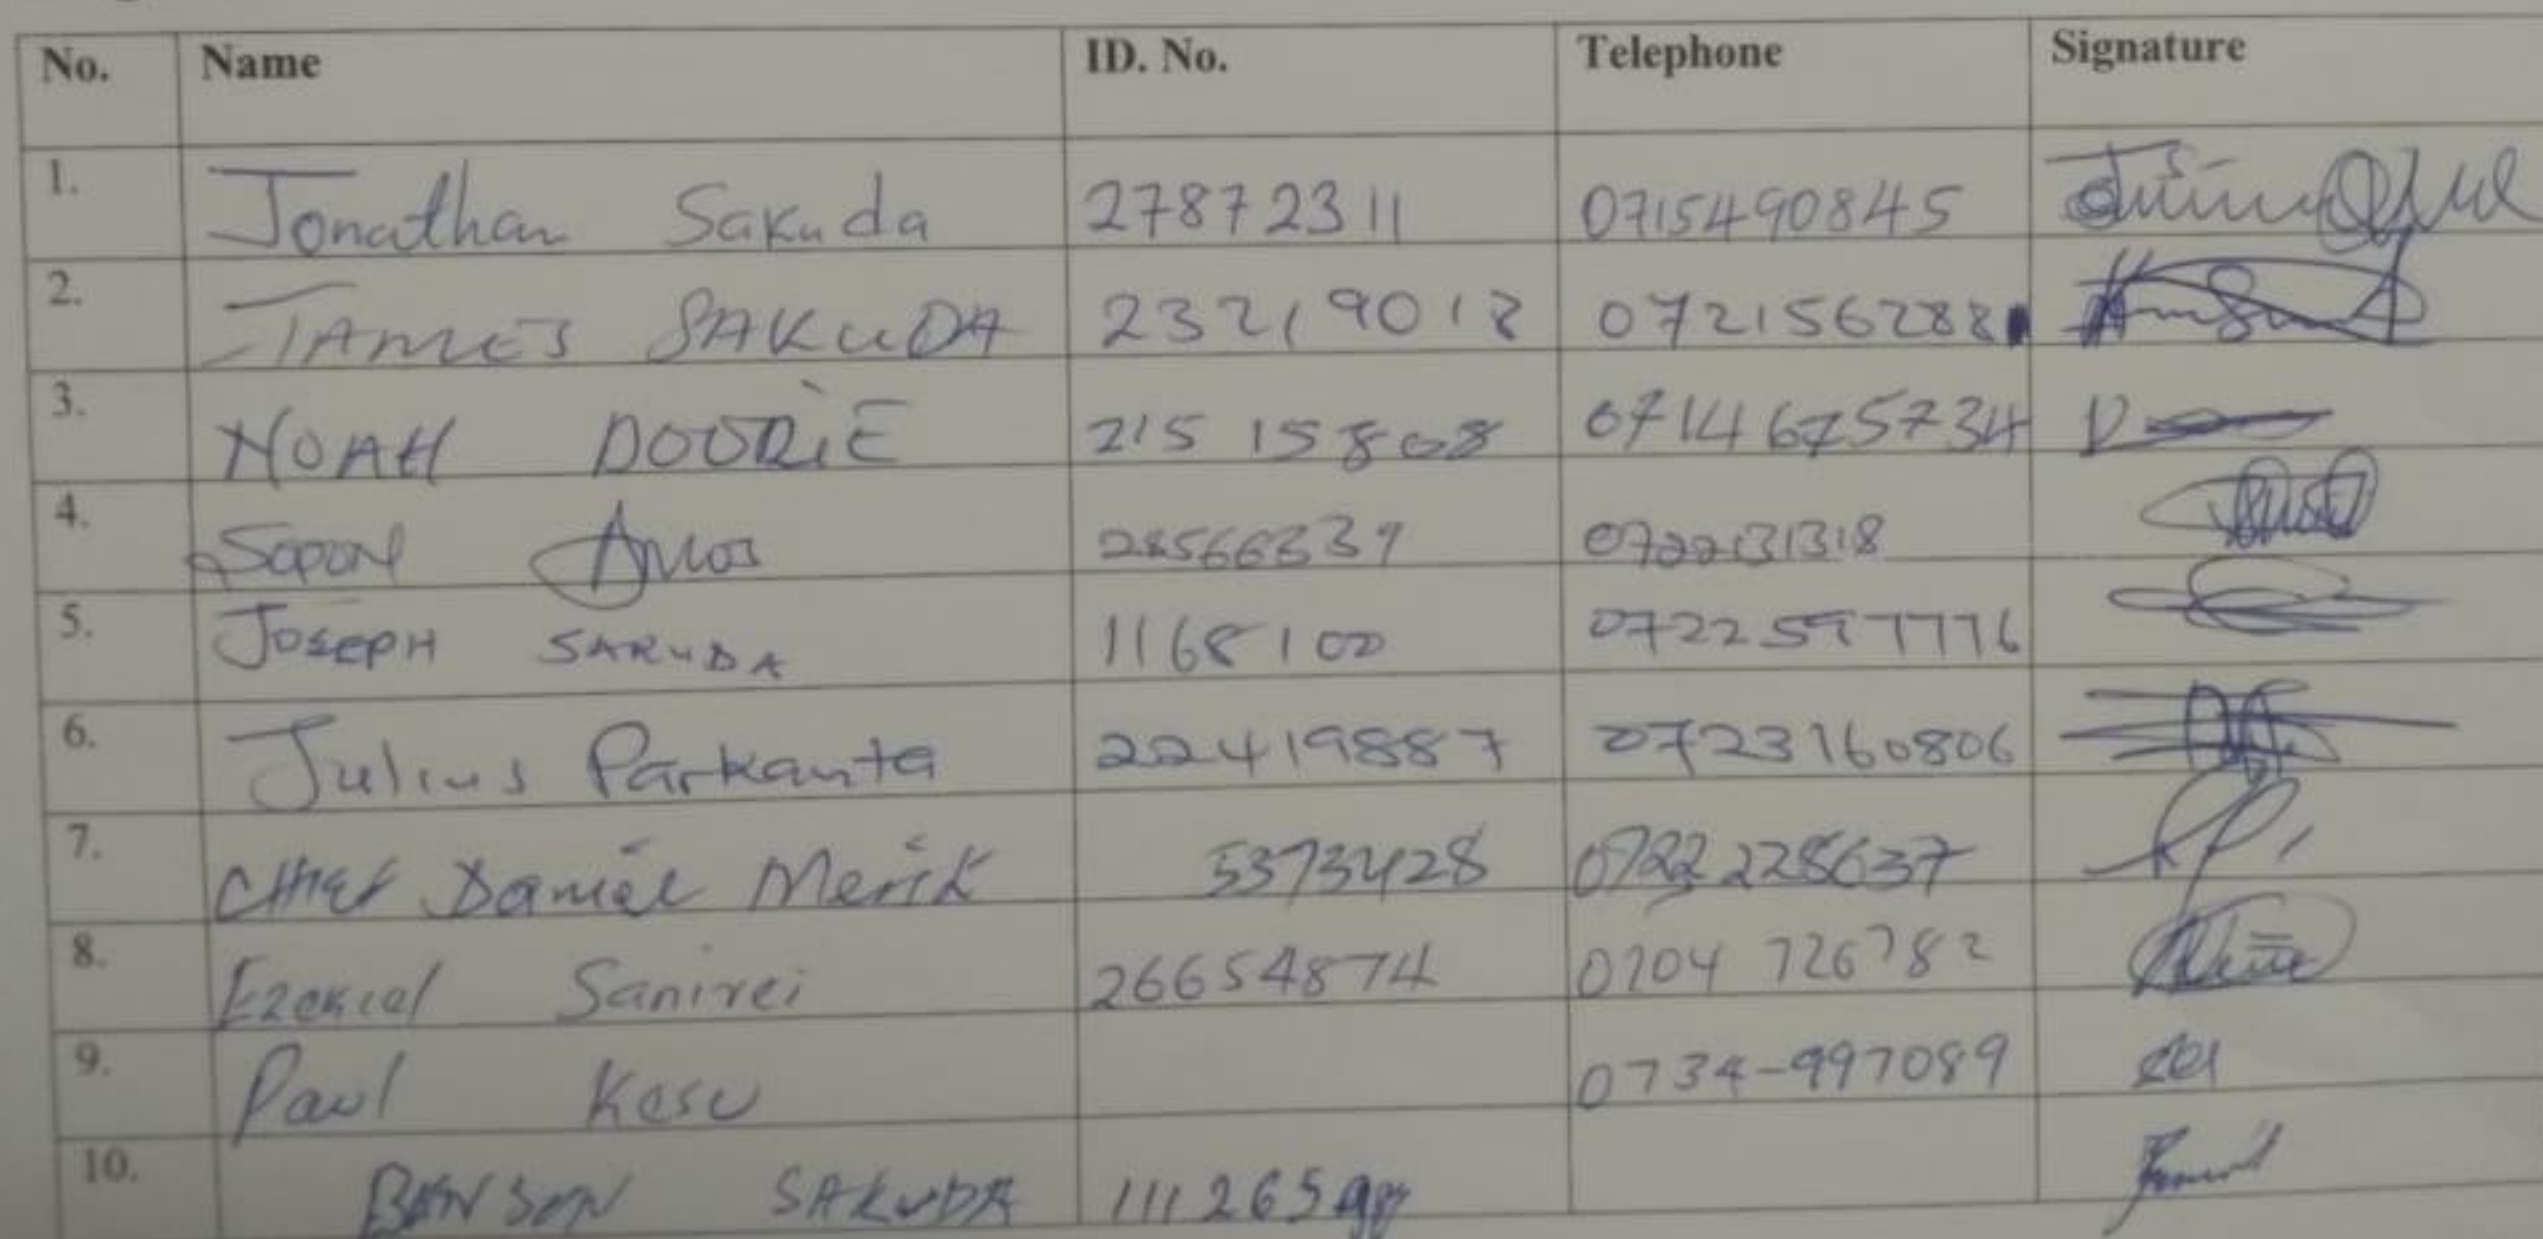 No. Name ID. No. Telephone Signature
1. Jonathan Sakuda 27872311 0715490845
2. JAMES SAKUDA 23219018 072156288
3. NOAH DOORIE 21515808 0714675734
4. Sopon Amos 0722131318
5. JOSEPH SAKUDA 1168100 0722597776
6. Julius Parkanta 22419887 0723160806
7. CHIEF Daniel Merik 5373428 0722228637
8. Ezekiel Sanirei 26654874 0704 726782
9. Paul Kesu 0734-997089
10. BENSON SAKUDA